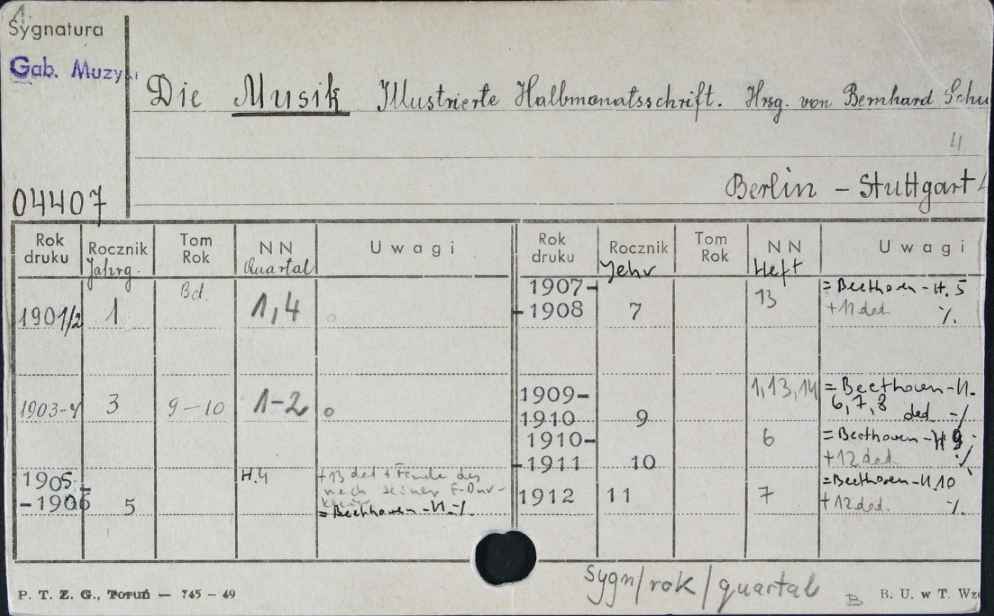 Sygnatura
Gab. Muzy
Die Musik Illustrierte Halbmonatsschrift. Hrsg. von Bernhard Schu
4
04407
Berlin – Stuttgart
Rok druku Rocznik Tom Rok NN Uwagi Rok druku Rocznik Tom Rok NN Uwagi
Jahrg. Quartal Jahr Heft
1901/2 1 Bd. 1,4
1903-4 3 9–10 1–2
1905-1906 5 H.4 +13 ded
nach seiner F-Dur-
= Beethoven-H. ./.
1907-1908 7 13 = Beethoven-H. 5
+11 ded. ./.
1909-1910 9 1,13,14 = Beethoven-H.
6,7,8 ded ./.
1910-1911 10 6 = Beethoven-H 9
+12 ded. ./.
1912 11 7 = Beethoven-H.10
+12 ded. ./.
Sygn/rok/quartal
P. T. Z. G., Toruń — 745 — 49
B B. U. w T. Wz